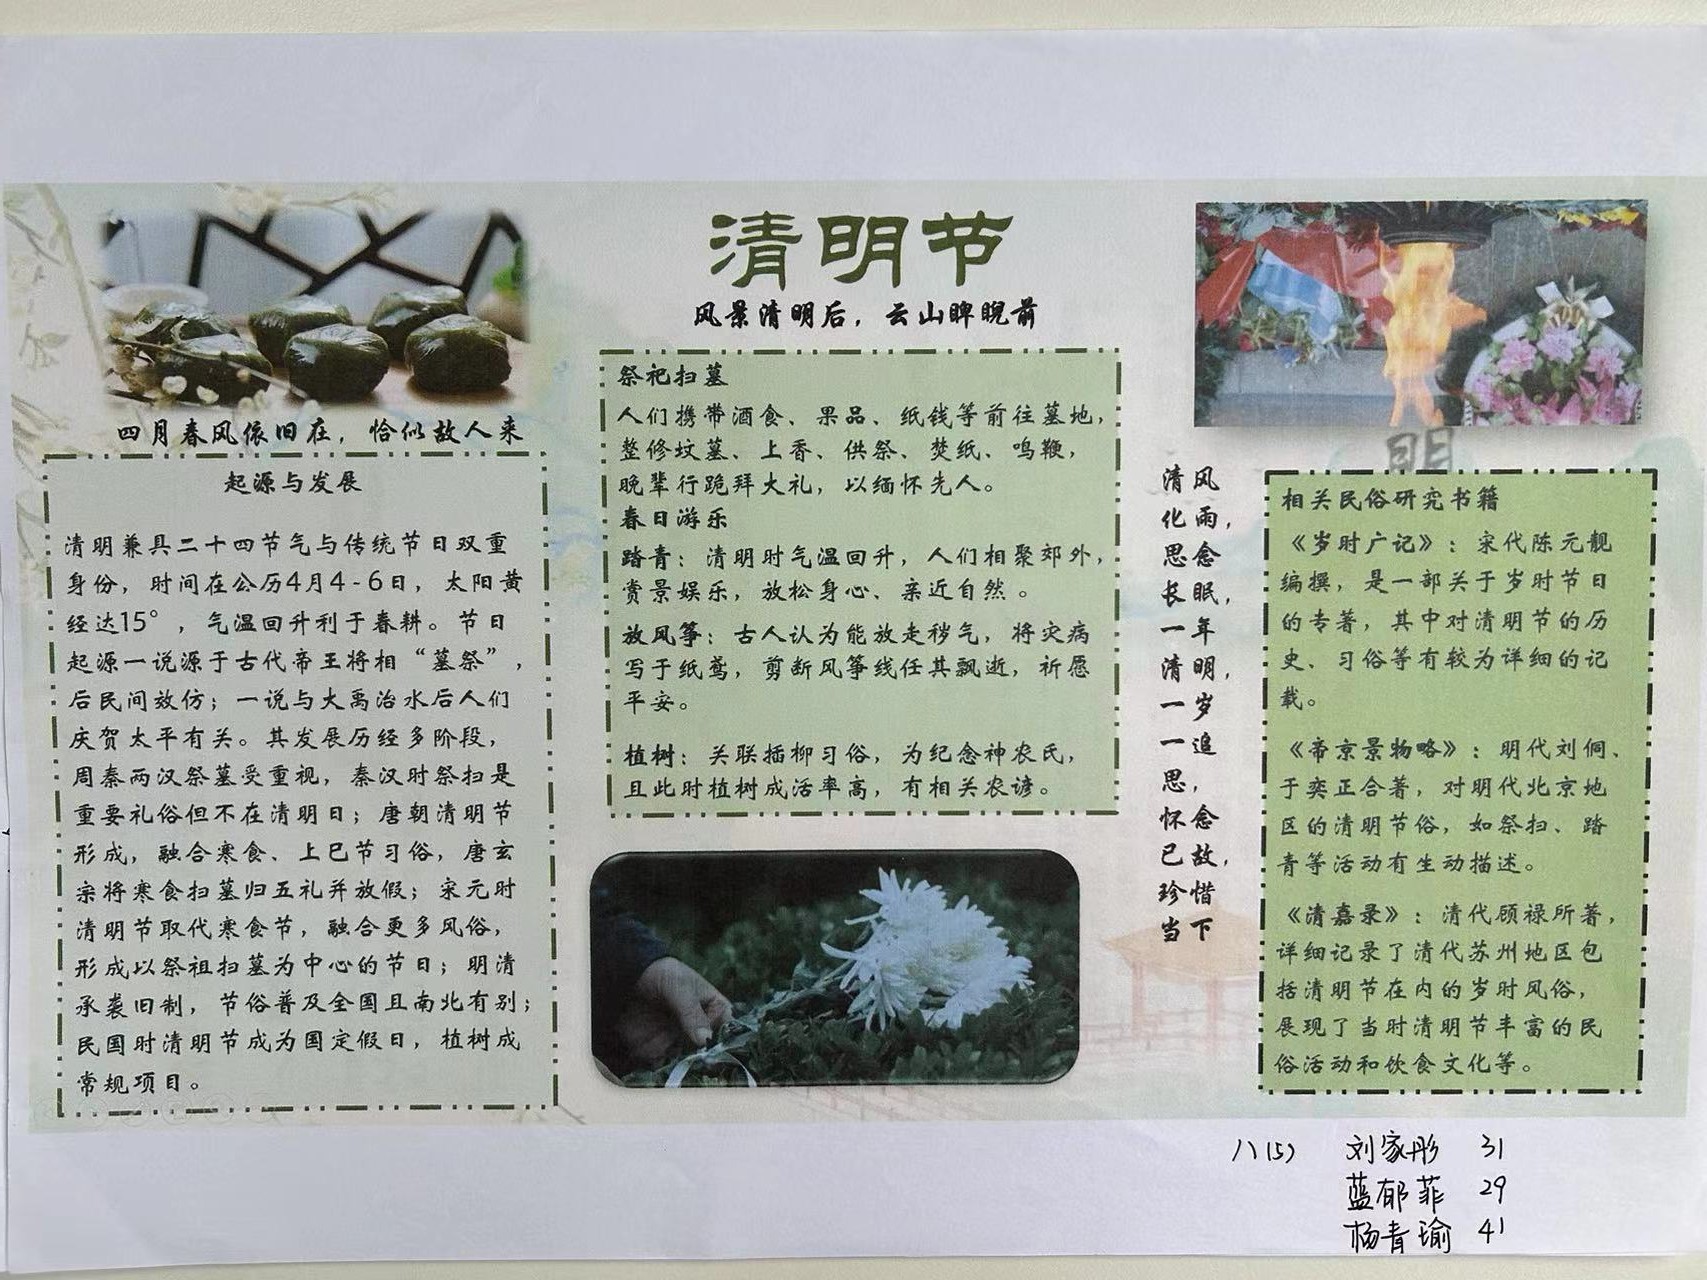 清明节
风景清明后，云山睥睨前
四月春风依旧在，恰似故人来
起源与发展
清明兼具二十四节气与传统节日双重
身份，时间在公历4月4-6日，太阳黄
经达15°，气温回升利于春耕。节日
起源一说源于古代帝王将相“墓祭”，
后民间效仿；一说与大禹治水后人们
庆贺太平有关。其发展历经多阶段，
周秦两汉祭墓受重视，秦汉时祭扫是
重要礼俗但不在清明日；唐朝清明节
形成，融合寒食、上巳节习俗，唐玄
宗将寒食扫墓归五礼并放假；宋元时
清明节取代寒食节，融合更多风俗，
形成以祭祖扫墓为中心的节日；明清
承袭旧制，节俗普及全国且南北有别；
民国时清明节成为国定假日，植树成
常规项目。
祭祀扫墓
人们携带酒食、果品、纸钱等前往墓地，
整修坟墓、上香、供祭、焚纸、鸣鞭，
晚辈行跪拜大礼，以缅怀先人。
春日游乐
踏青：清明时气温回升，人们相聚郊外，
赏景娱乐，放松身心、亲近自然。
放风筝：古人认为能放走秽气，将灾病
写于纸鸢，剪断风筝线任其飘逝，祈愿
平安。
植树：关联插柳习俗，为纪念神农氏，
且此时植树成活率高，有相关农谚。
清风
化雨，
思念
长眠，
一年
清明，
一岁
一追
思，
怀念
已故，
珍惜
当下
明
相关民俗研究书籍
《岁时广记》：宋代陈元靓
编撰，是一部关于岁时节日
的专著，其中对清明节的历
史、习俗等有较为详细的记
载。
《帝京景物略》：明代刘侗、
于奕正合著，对明代北京地
区的清明节俗，如祭扫、踏
青等活动有生动描述。
《清嘉录》：清代顾禄所著，
详细记录了清代苏州地区包
括清明节在内的岁时风俗，
展现了当时清明节丰富的民
俗活动和饮食文化等。
八(5) 刘家彤 31
蓝郁菲 29
杨青瑜 41